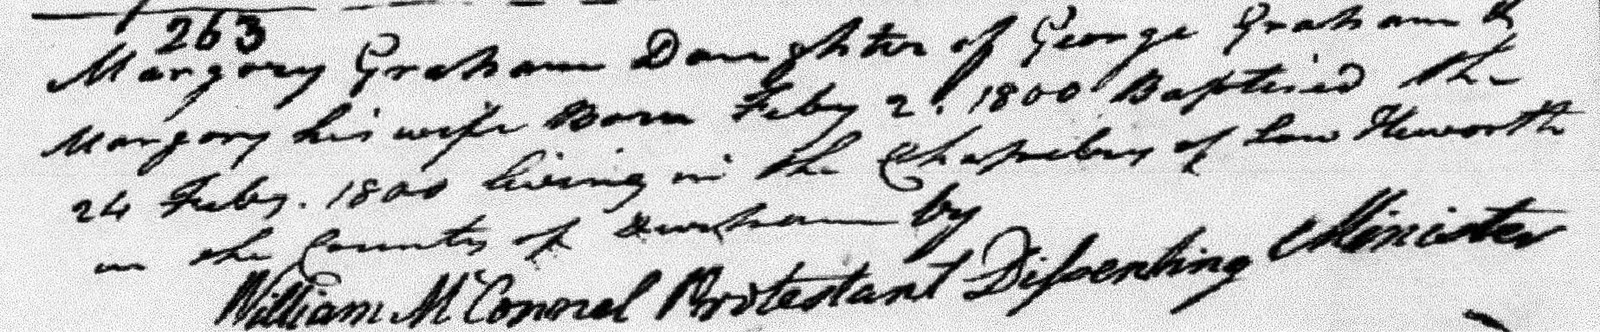 263
Margory Graham Daughter of George Graham &
Margory his wife Born Feby 2. 1800 Baptised the
24 Feby. 1800 living in the Chapelry of Low Heworth
in the County of Durham by
William McConnel Protestant Dissenting Minister